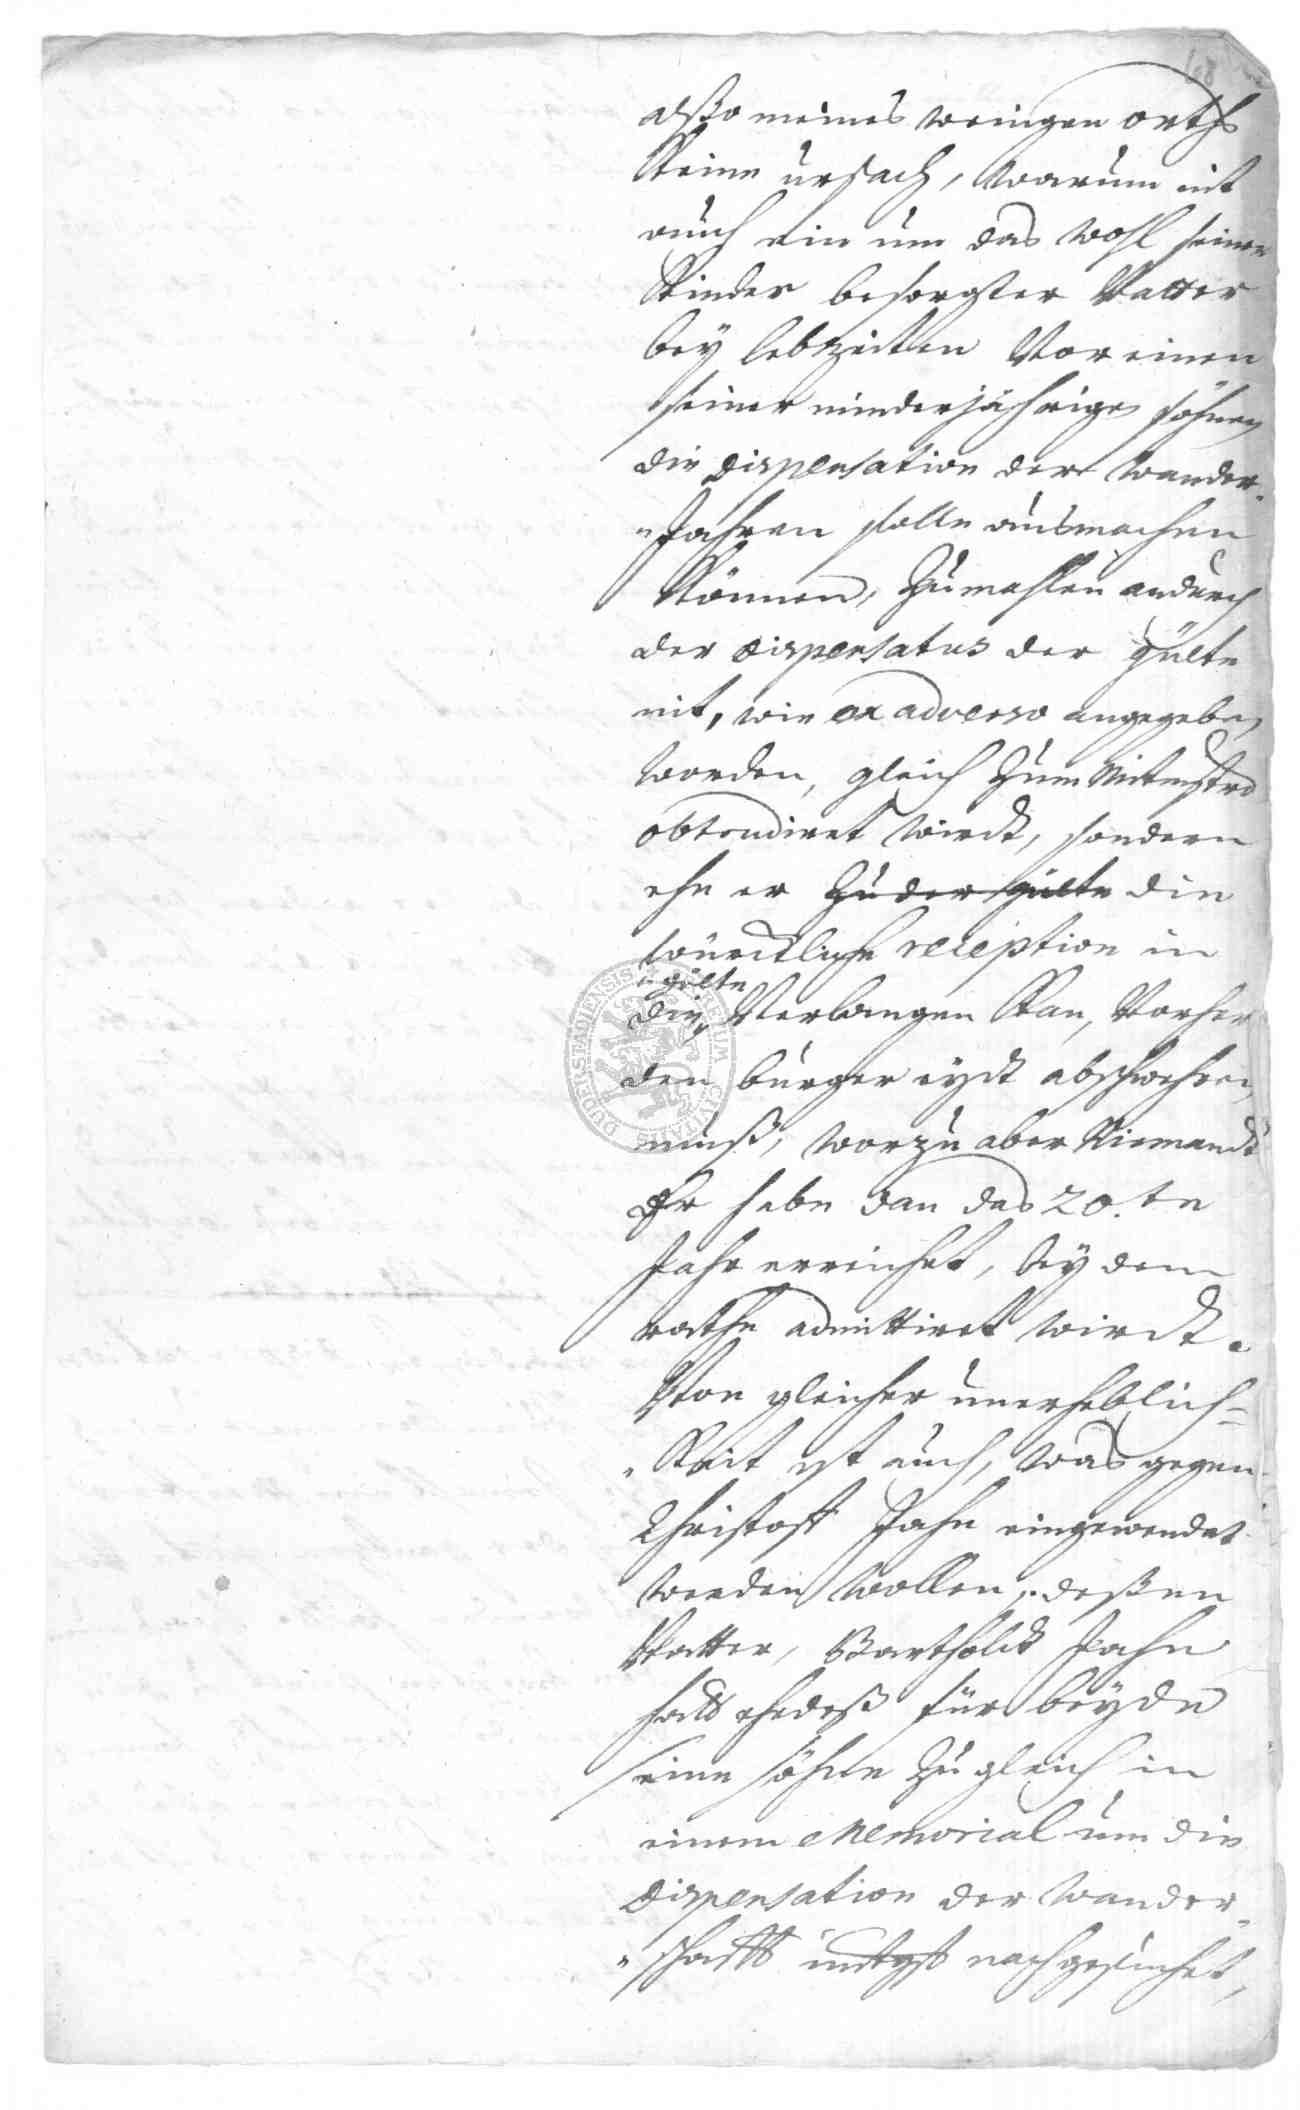 68
alßo meines weingen orths
Keine ursach, warum nit
auch ein um das wohl seiner
Kinder besorgter Vatter
bey lebzeiten Vor einen
seiner minderjährigen söhnen
die Dispensation der wander-
-Jahren solle ausmachen
Können, Zumahlen andurch
der dispensatus der gülte
nit, wie ex adverso angegeben
worden, gleich Zum Mitmstrd
obtrudiret wirdt, sondern
ehe er Zu der gülte die
würckliche reception in
gülte
die Verlangen Kan, Vorher
den burger eydt abschwehren
muß, worzu aber Niemandt
Er habe dan das 20.te
Jahr erreichet, bey dem
rathe admittiret wirdt.
Von gleicher unerheblich-
-Keit ist auch, was gegen
Christoff Jahn eingewendet
werden wollen, deßen
Vatter, Barthold Jahn
hatt ehedeß für beyde
seine söhne Zugleich in
einem Memorial um die
Dispensation der wander-
-schafft nachgesuchet,
DUDERSTADIENSIS CIVITATIS